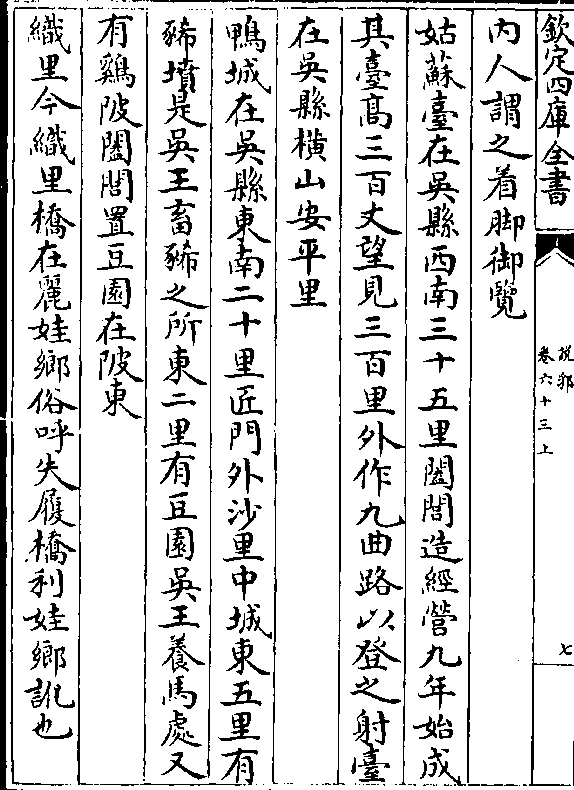 欽定四庫全書
說郛
卷六十三上
七
内人謂之着脚御覽
姑蘇臺在吳縣西南三十五里闔閭造經營九年始成
其臺髙三百丈望見三百里外作九曲路以登之射臺
在吳縣橫山安平里
鴨城在吳縣東南二十里匠門外沙里中城東五里有
豨墳是吳王畜豨之所東二里有豆園吳王養馬處又
有鷄陂闔閭置豆園在陂東
織里今織里橋在麗娃鄉俗呼失履橋利娃鄉訛也